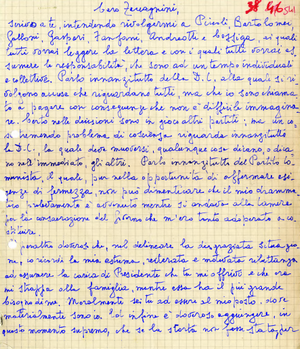 Caro Zaccagnini,
scrivo a te, intendendo rivolgermi a Piccoli, Bartolomei,
Galloni, Gaspari, Fanfoni, Andreotti e Cossiga, ai quali
tutti vorrai leggere la lettera e con i quali tutti vorrai as=
sumere le responsabilità, che sono ad un tempo individuali
e collettive. Parlo innanzitutto della D.C. alla quale si ri=
volgono accuse che riguardano tutti, ma che io sono chiama=
to a pagare con conseguenze che non è difficile immagina=
re. Certo nelle decisioni sono in gioco altri partiti; ma un co=
sì tremendo problema di coscienza riguarda innanzitutto
la D.C., la quale deve muoversi, qualunque cosa dicano, o dica=
no nell'immediato, gli altri. Parlo innanzitutto del Partito Co=
munista, il quale, pur nella opportunità di affermare esi=
genze di fermezza, non può dimenticare che il mio dramma=
tico prelevamento è avvenuto mentre si andava alla Camera
per la consacrazione del Governo che m'ero tanto adoperato a co=
stituire.
È peraltro doveroso che, nel delineare la disgraziata situazio=
ne, io ricordi la mia estrema, reiterata e motivata riluttanza
ad assumere la carica di Presidente che tu mi offrivi e che ora
mi strappa alla famiglia, mentre essa ha il più grande
bisogno di me. Moralmente sei tu ad essere al mio posto, dove
materialmente sono io. Ed infine è doveroso aggiungere, in
questo momento supremo, che se la scorta non fosse stata, per